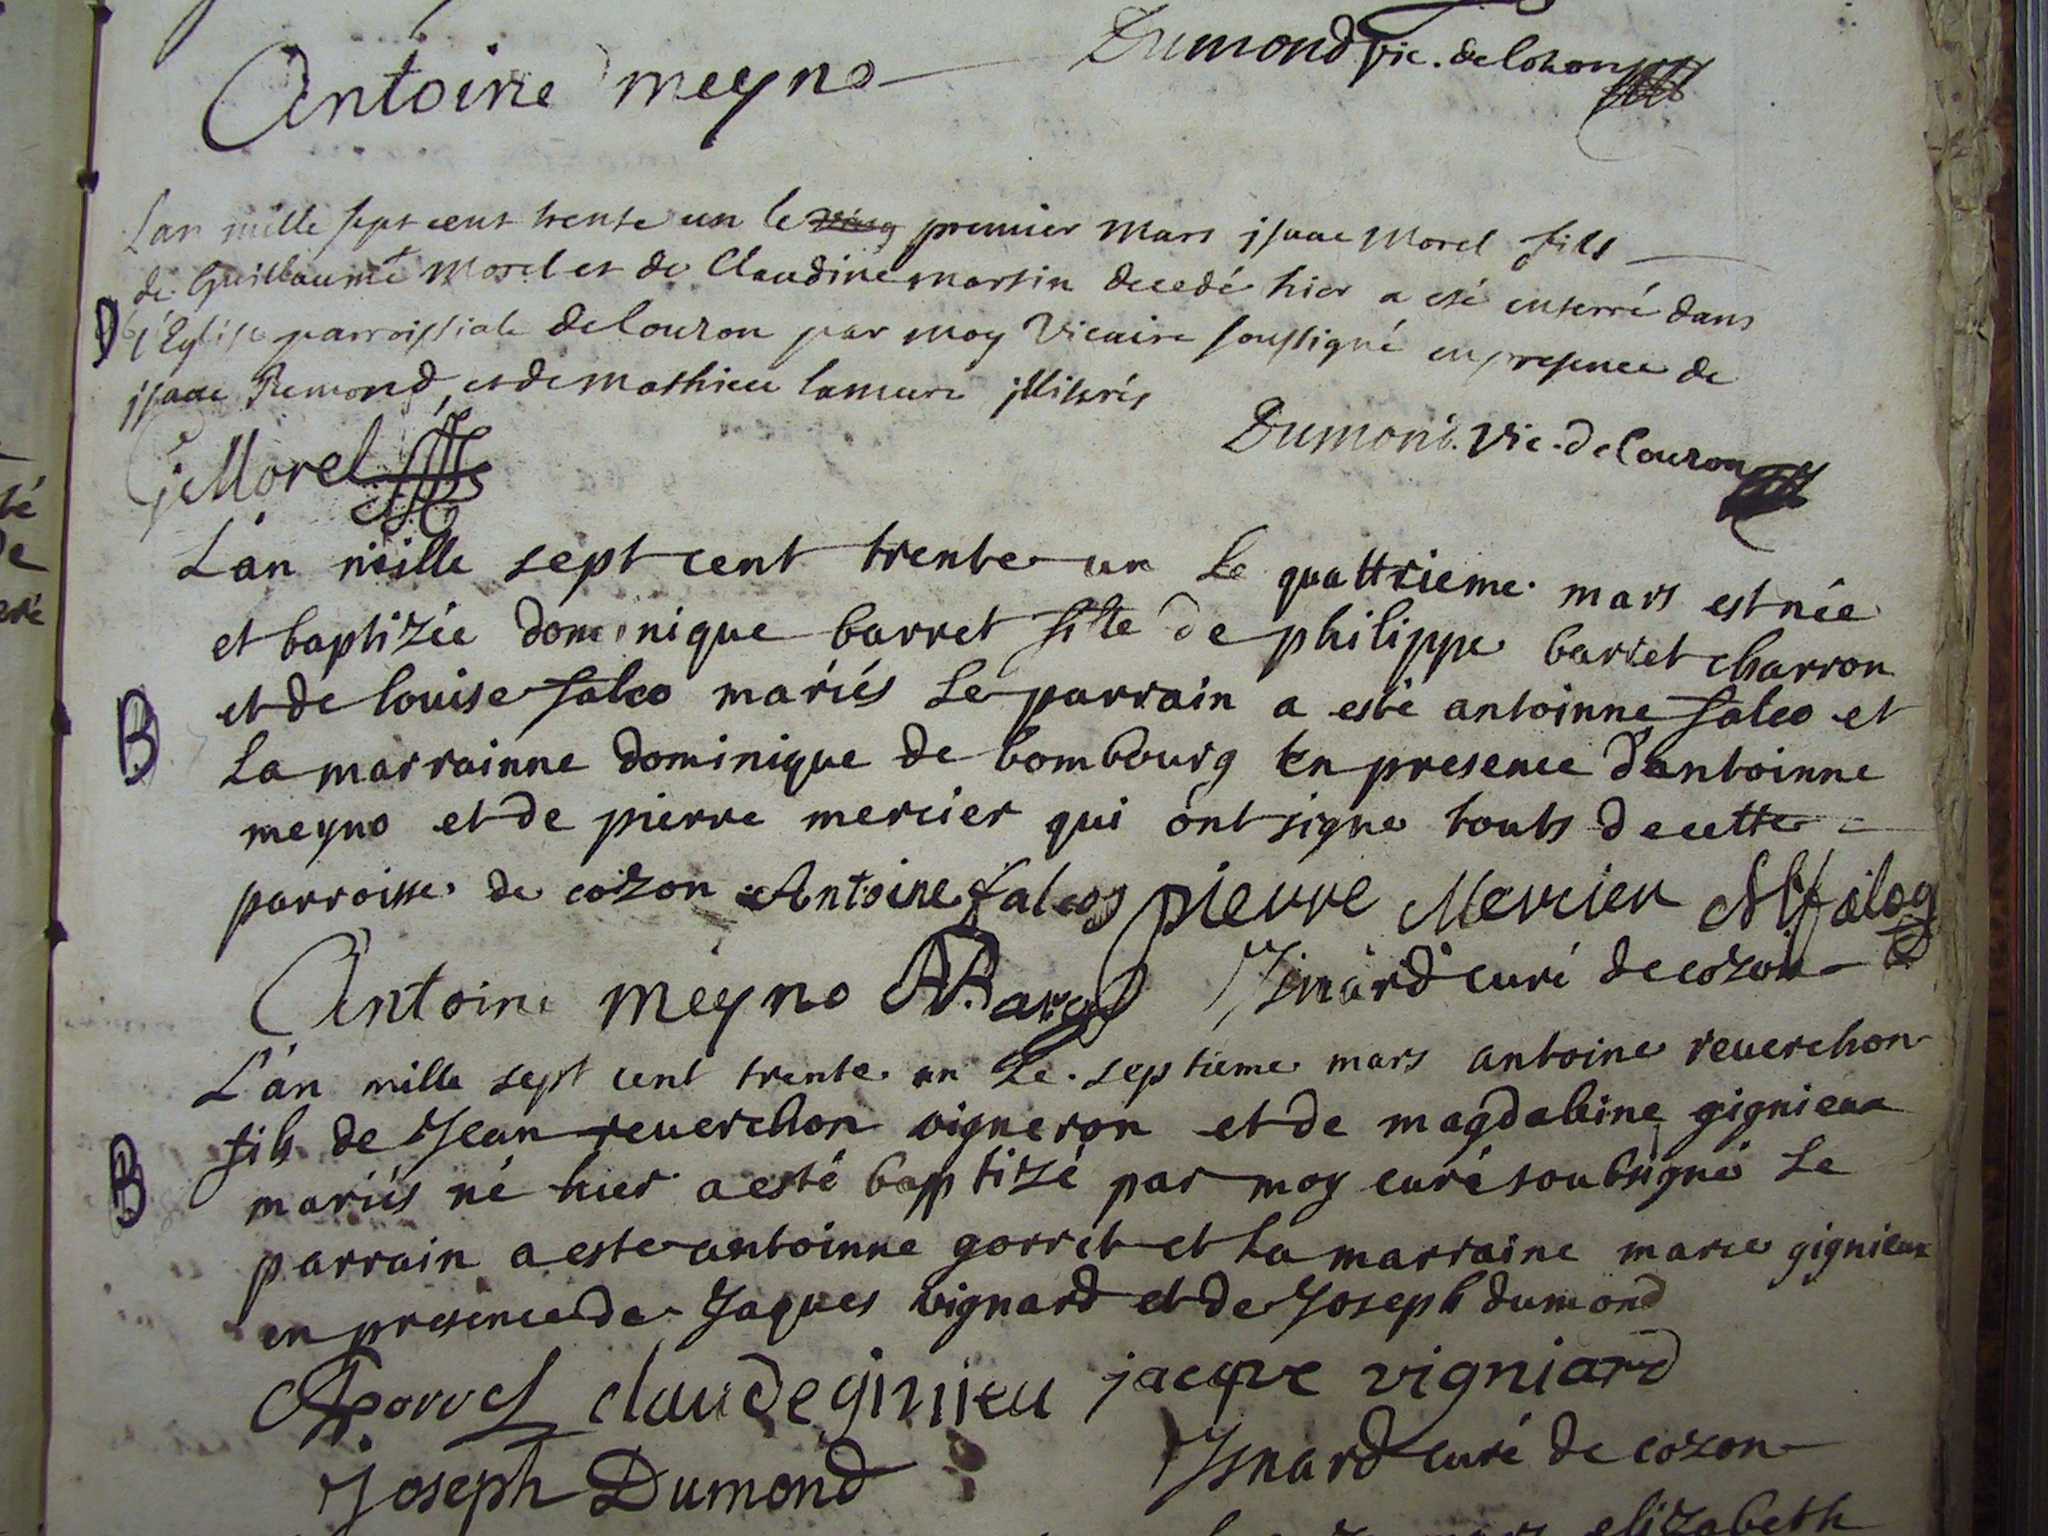 Antoine meyno Dumond vic. de
Lan mille sept cent trente un le premier mars jsaac Morel fils
de Guillaume Morel et de Claudine martin decedé hier a esté enterré dans
D l'Eglise parroissiale de Couzon par moy Vicaire soussigné en presence de
jsaac Remond, et de Mathieu lamure illiterés
Morel Dumond. Vic. de Couzon
L'an mille sept cent trente un Le quattrieme mars est née
et baptizée dominique barret fille de philippe barret charron
et de louise falco mariés Le parrain a esté antoinne falco et
B
La marrainne dominique de bombourg En presence d'antoinne
meyno et de pierre mercier qui ont signe touts de cette
parroisse de cozon Antoine falco pierre Mercier
Antoine meyno Isnard curé de cozon
L'an mille sept cent trente un Le septieme mars antoine reuerchon
fils de Jean reuerchon vigneron et de magdaleine gignieux
B
mariés né hier a esté baptizé par moy curé soubsigné Le
parrain a este antoinne gorret et La marraine marie gignieux
en presence de Jaques vignard et de Joseph dumond
claude giniieu jacque vigniard
Joseph Dumond Isnard curé de cozon
elizabeth